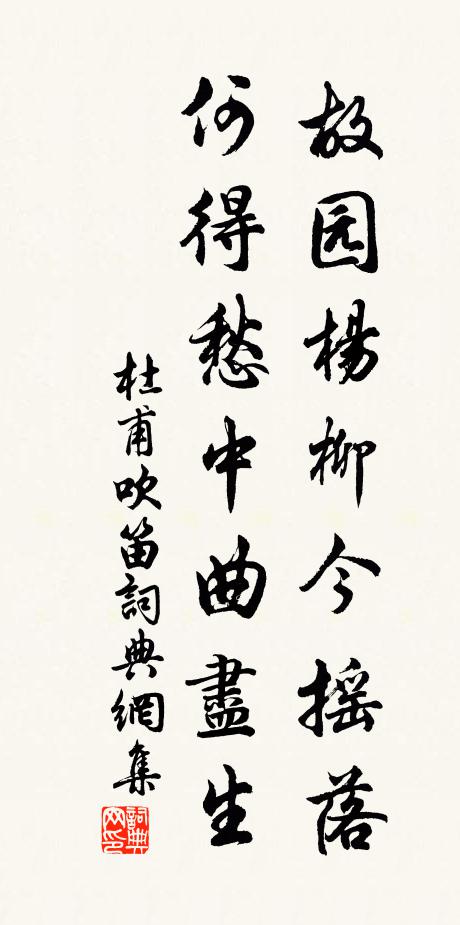 故园楊柳今摇落
何得愁中曲盡生
杜甫吹笛詞典網集
詞典
网印